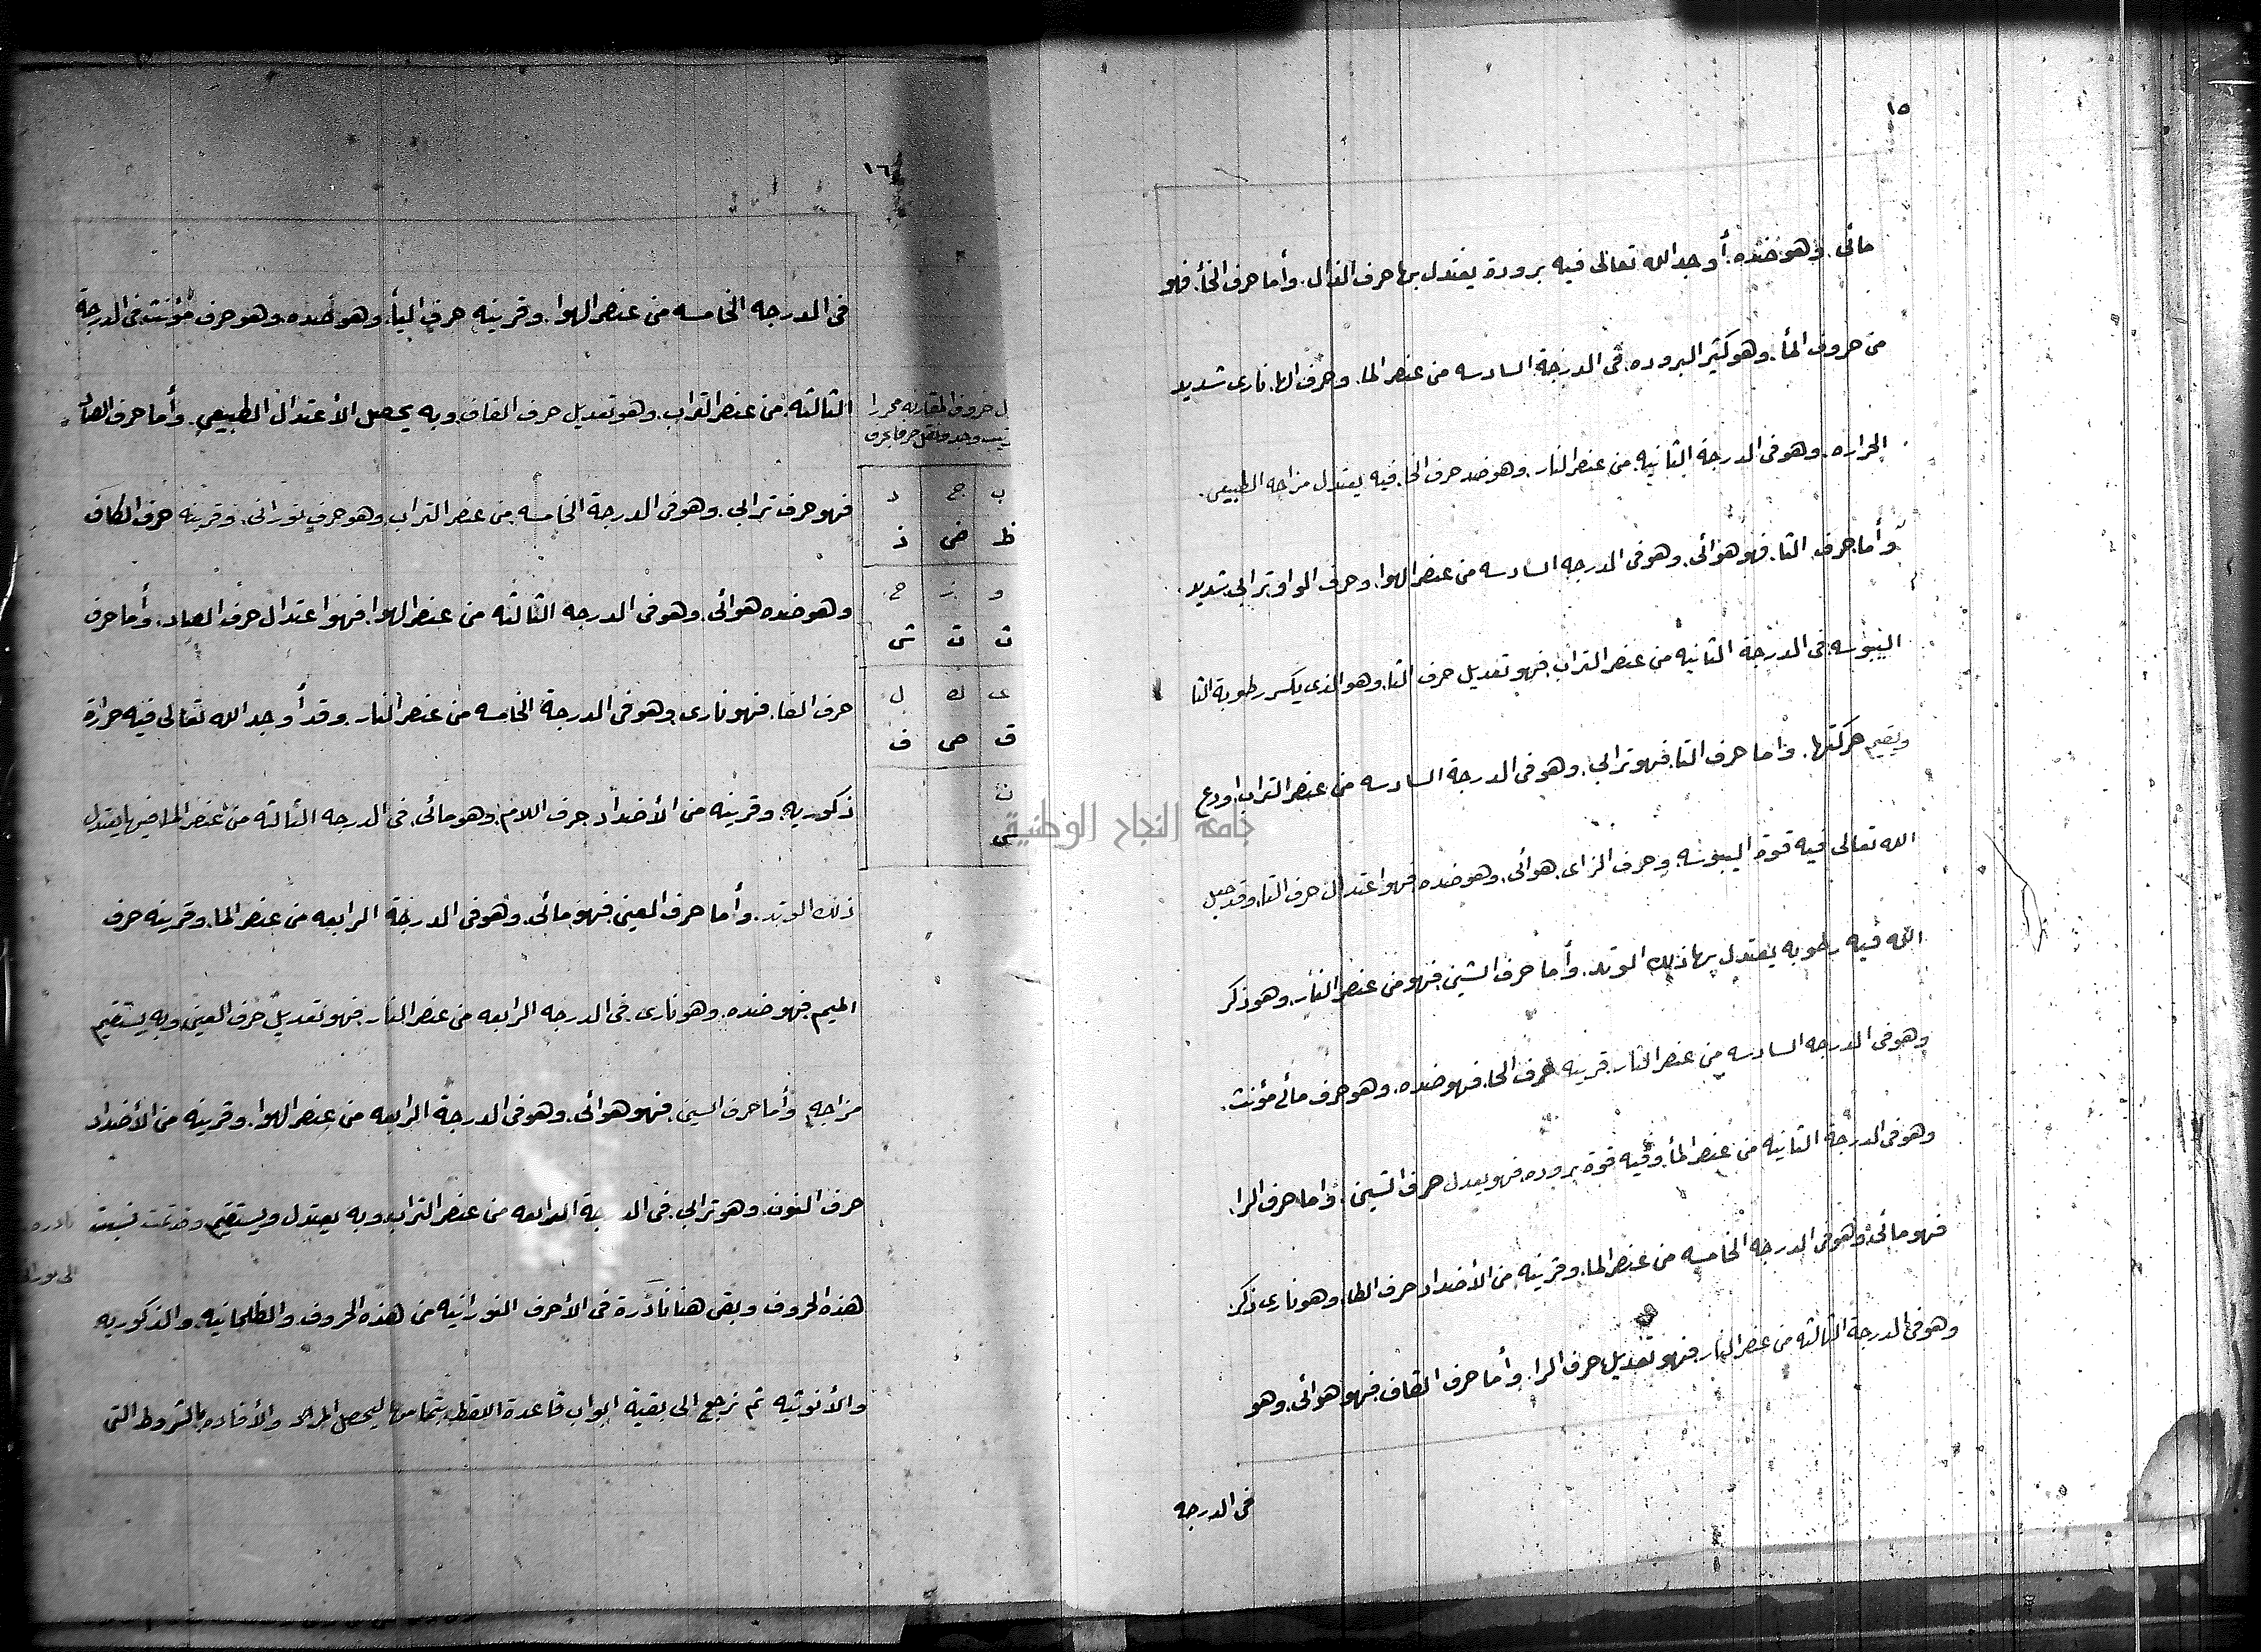 ١٥
مائى. وهو ضده. أوجد الله تعالى فيه برودة يعتدل بها حرف الذال. وأما حرف الخأ. فهو
من حروف المأ. وهو كثير البروده. فى الدرجة السادسه من عنصر الما. وحرف الها. نارى شديد
الحراره. وهو فى الدرجة الثانيه. من عنصر النار. وهو ضد حرف الخا. فيه يعتدل مزاجه الطبيعى.
وأما حرف الثا. فهو هوائى. وهو فى الدرجه السادسه من عنصر الهوا. وحرف الواو ترابي شديد
اليبوسه. فى الدرجة الثانيه من عنصر التراب. فهو تعديل حرف الثا. وهو الذى يكسر رطوبة الثا
ويقيم حركتها. واما حرف التا. فهو ترابي. وهو فى الدرجة السادسه من عنصر التراب. اودع
الله تعالى فيه قوة اليبوسه. وحرف الزاى. هوائى. وهو ضده. فهو اعتدال حرف التا. وقد جعل
الله فيه رطوبه يعتدل بها ذلك الوتد. وأما حرف الشين. فهو من عنصر النار. وهو ذكر
وهو فى الدرجه السادسه من عنصر النار. قرينه حرف الحا. فهو ضده. وهو حرف مائى مؤنث.
وهو فى الدرجة الثانيه من عنصر المأ. وفيه قوة بروده. فهو يعدل حرف الشين. واما حرف الرا.
فهو مائى. وهو فى الدرجه الخامسه من عنصر الما. وقرينه من الأضداد حرف الطا. وهو نارى ذكر.
وهو فى الدرجة الثالثه من عنصر النار. فهو تعديل حرف الرا. وأما حرف القاف. فهو هوائى. وهو
فى الدرجه
١٦
فى الدرجه الخامسه من عنصر الهوا. وقرينه حرف اليأ. وهو ضده. وهو حرف مؤنث. فى الدرجة
الثالثه. من عنصر التراب. وهو تعديل حرف القاف. وبه يحصل الأعتدال الطبيعي. وأما حرف الصاد
فهو حرف ترابي. وهو فى الدرجة الخامسه من عنصر التراب. وهو حرف نورانى. وقرينه حرف الكاف
وهو ضده هوائى. وهو فى الدرجه الثالثه من عنصر الهوا. فهو اعتدال حرف الصاد. وأما حرف
حرف الفا. فهو نارى. وهو فى الدرجة الخامسه من عنصر النار. وقد أوجد الله تعالى فيه حرارة
ذكوريه. وقرينه من الأضداد حرف اللام. وهو مائى. فى الدرجه الثالثه من عنصر الما. فيها يعتدل
ذلك الوتد. وأما حرف العين. فهو مائى. وهو فى الدرجة الرابعه من عنصر الما. وقرينه حرف
الميم. فهو ضده. وهو نارى. فى الدرجه الرابعه من عنصر النار. فهو تعديل حرف العين. وبه يستقيم
مزاجه. وأما حرف السين. فهو هوائى. وهو فى الدرجة الرابعه من عنصر الهوا. وقرينه من الأضداد
حرف النون. وهو ترابي. فى الدرجة الرابعه من عنصر التراب. وبه يعتدل ويستقيم وقد تمت نسبت
هذه الحروف وبقى هنا نادرة فى الأحرف النورانيه من هذه الحروف. والظلمانيه. والذكوريه
والأنوثيه ثم نرجع الى بقية ابواب قاعدة اللقط. بتمامها ليحصل المراد والأفاده بالشروط التى
حروف المقارنه محررا
حرفا بحرف
ب ج د
ظ ض ذ
و ز ح
ث ت ش
ى ك ل
ق ص ف
ن
س
جامعة النجاح الوطنية